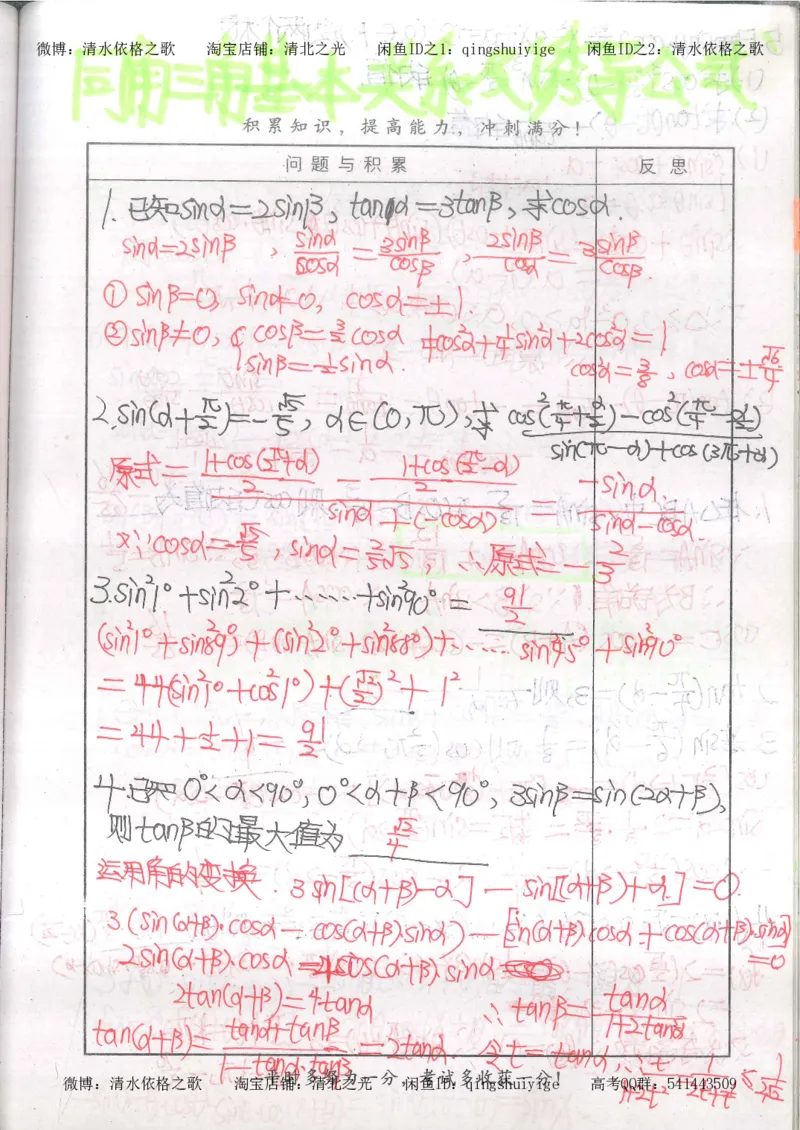 微博:清水依格之歌 淘宝店铺:清北之光 闲鱼ID之1:qingshuiyige 闲鱼ID之2:清水依格之歌
同角三角基本关系式 诱导公式
积累知识,提高能力,冲刺满分!
问题与积累 反思
1. 已知sinα=2sinβ, tanα=3tanβ, 求cosα.
sinα=2sinβ, sinα/cosα=3sinβ/cosβ, 2sinβ/cosα=3sinβ/cosβ.
① sinβ=0, sinα=0, cosα=±1
② sinβ≠0, { cosβ=3/2cosα 1/4cos²α+1/4sin²α+2cos²α=1
sinβ=1/2sinα. cos²α=3/8, cosα=±√6/4
2. sin(α+π/2)=-√5/5, α∈(0,π), 求 cos²(π/4+α/2)-cos²(π/4-α/2)
sin(π-α)+cos(3π+α)
原式= 1+cos(π/2+α)/2 - 1+cos(π/2-α)/2 / sinα+(-cosα) = -sinα/sinα-cosα.
又∵cosα=-√5/5, sinα=2/5√5, ∴原式=-2/3
3. sin²1°+sin²2°+……+sin²90°= 91/2
(sin²1°+sin²89°)+(sin²2°+sin²88°)+…… sin²45°+sin²90°
=44(sin²1°+cos²1°)+(√2/2)²+1²
=44+1/2+1=91/2
4. 已知0°<α<90°, 0°<α+β<90°, 3sinβ=sin(2α+β),
则tanβ的最大值为 √2/4
运用角的变换. 3sin[(α+β)-α]-sin[(α+β)+α]=0.
3(sin(α+β)·cosα-cos(α+β)·sinα)-[sin(α+β)·cosα+cos(α+β)·sinα]=0
2sin(α+β)·cosα=4cos(α+β)sinα
2tan(α+β)=4tanα ∴tanβ=tanα/1+2tan²α
tan(α+β)=tanα+tanβ/1-tanα·tanβ=2tanα. 令t=tanα, ∴t/1+2t²=1/2t+1/t≤1/2√2
平时多努力一分,考试多收获一分!
微博:清水依格之歌 淘宝店铺:清北之光 闲鱼ID之1:qingshuiyige 高考QQ群:541443509